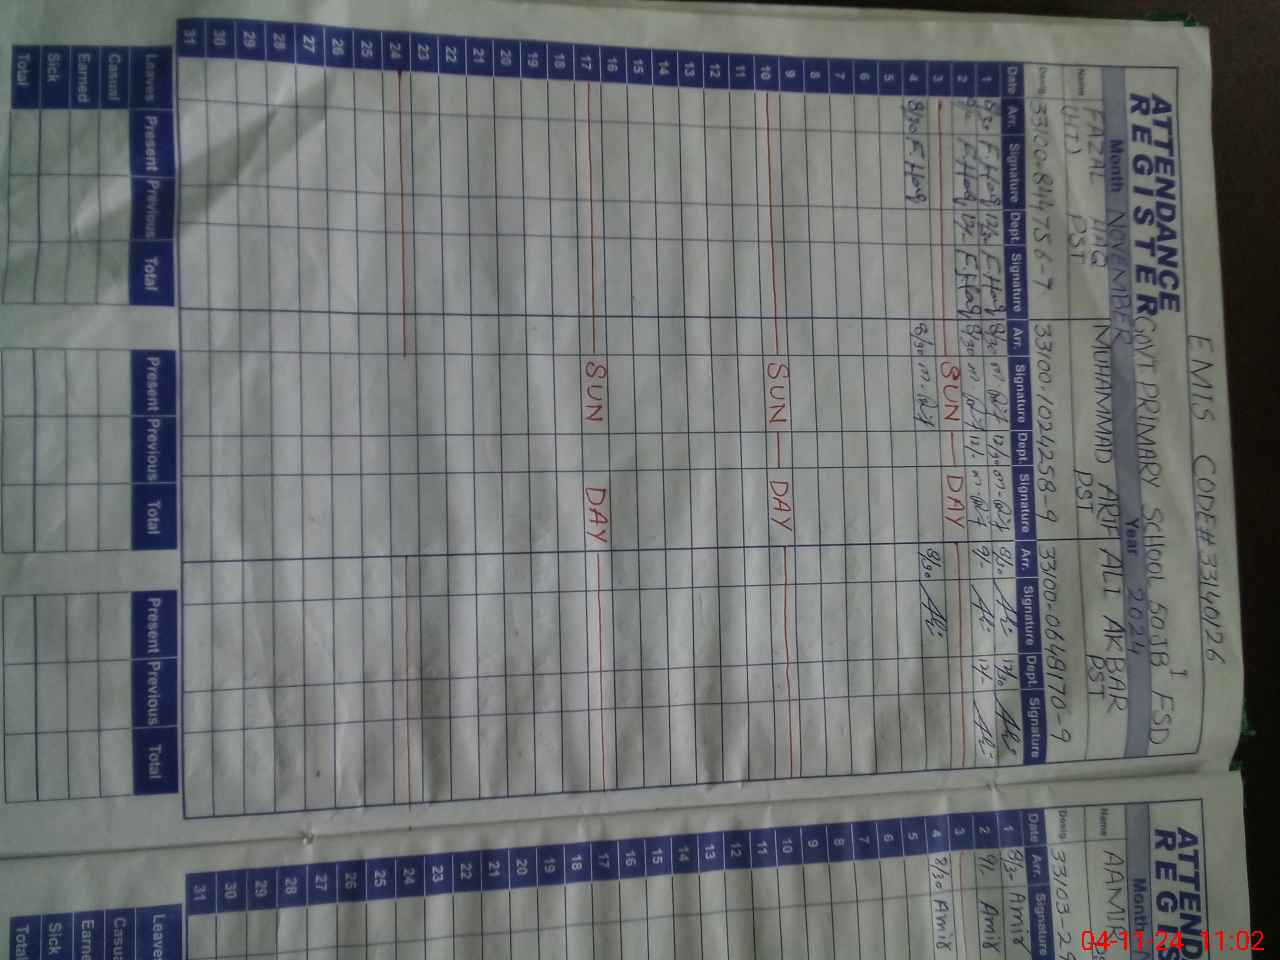 EMIS CODE# 33140126
ATTENDANCE REGISTER
GOVT PRIMARY SCHOOL 50JB1 FSD
Month NOVEMBER Year 2024
Name FAZAL HAQ MUHAMMAD ARIF ALI AKBAR
(HT) PST PST PST
Desig 33100-8447556-7 33100-1024258-9 33100-0648170-9
Date Arr. Signature Dept. Signature Arr. Signature Dept. Signature Arr. Signature Dept. Signature
1 8/30 F.Haq 12/30 F.Haq 8/30 12/30 8/30 Ali 12/30 Ali
2 F.Haq 12/- F.Haq 8/30 12/- 9/- Ali 12/- Ali
3 SUN DAY
4 8/30 F.Haq 8/30 8/30 Ali
5
6
7
8
9
10 SUN DAY
11
12
13
14
15
16
17 SUN DAY
18
19
20
21
22
23
24
25
26
27
28
29
30
31
Leaves Present Previous Total Present Previous Total Present Previous Total
Casual
Earned
Sick
Total
ATTEND
REGIS
Month
Name AAMIR
Desig 33103-29
Date Arr. Signature
1 8/30 Amir
2 9/- Amir
3
4 8/30 Amir
5
6
7
8
9
10
11
12
13
14
15
16
17
18
19
20
21
22
23
24
25
26
27
28
29
30
31
Leaves
Casua
Earne
Sick
Total
04-11-24 11:02